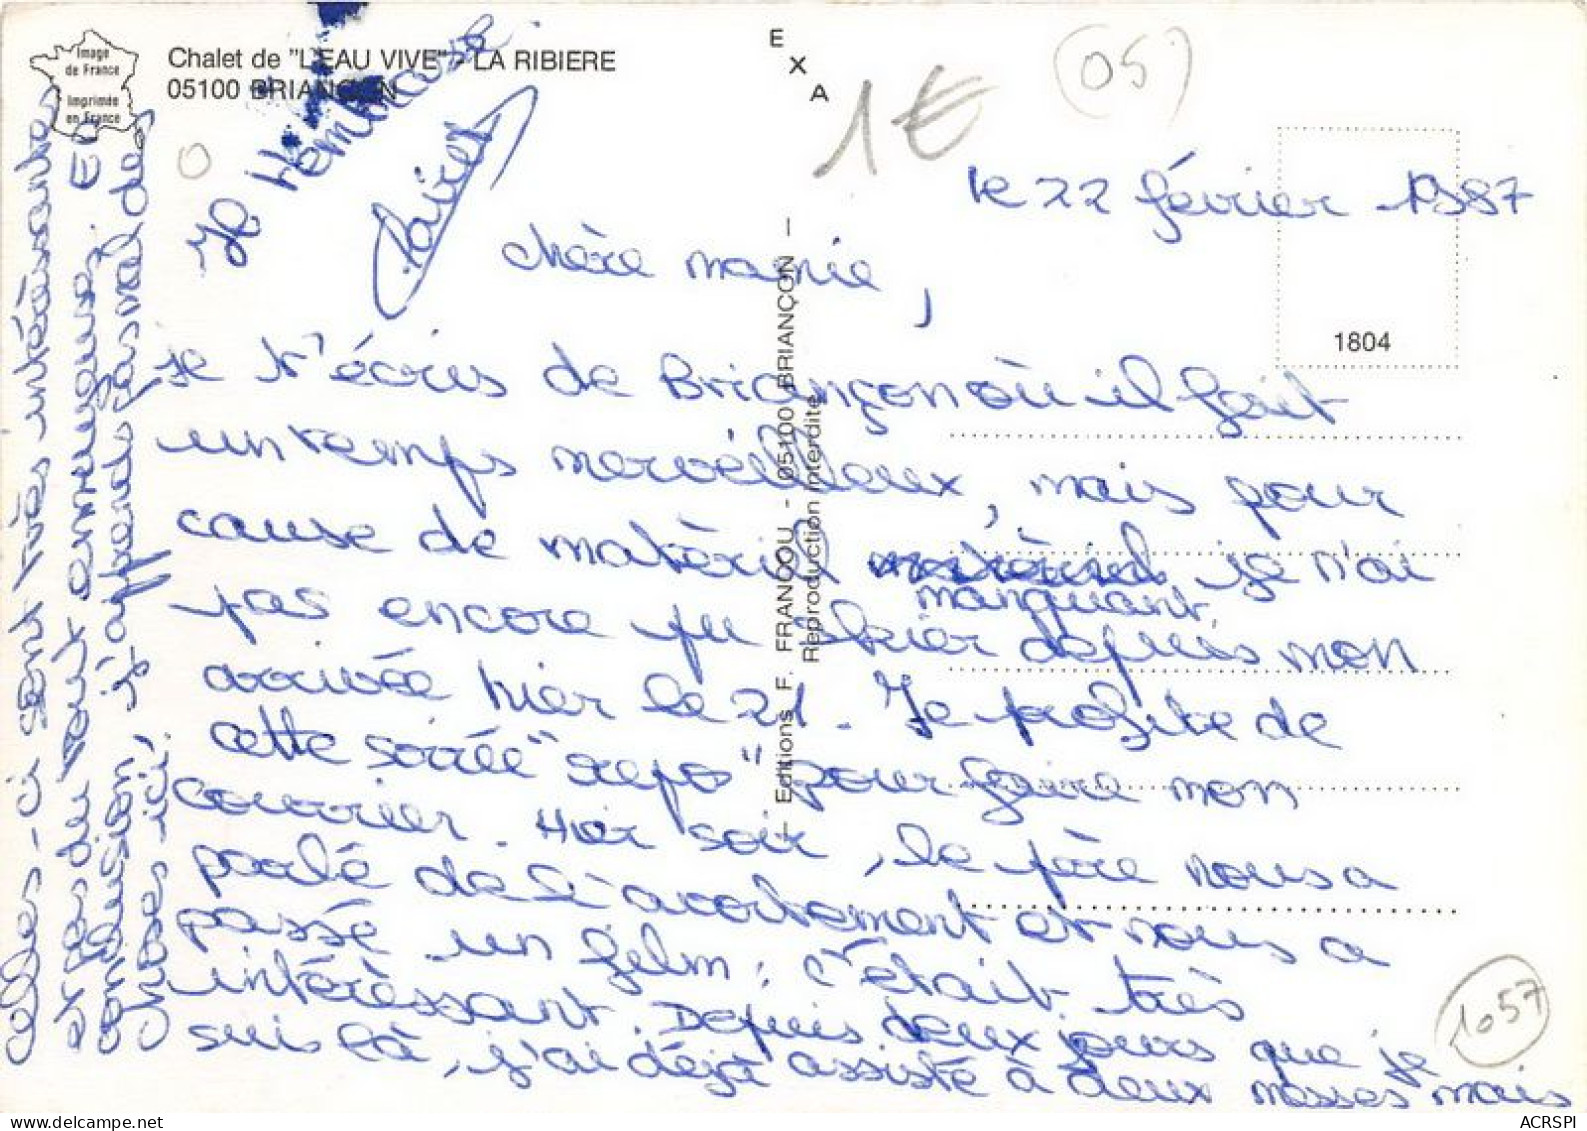 Image
de France
Imprimée
en France
Chalet de "L'EAU VIVE" - LA RIBIERE
05100 BRIANÇON
E
X
A
1€
05
le 22 février 1987
chère mamie,
1804
Je t'écris de Briançon où il fait
un temps merveilleux, mais pour
cause de matériel manquant je n'ai
pas encore pu skier depuis mon
arrivée hier le 21. Je profite de
cette soirée "repo" pour faire mon
courrier. Hier soir, le père nous a
parlé de l'avortement et nous a
passé un film : c'était très
intéressant. Depuis deux jours que je
suis là, j'ai déjà assisté à deux messes mais
celles-ci sont très intéréssantes
et pas du tout ennuyeuses. En
conclusion, j'apprend pas mal de
choses ici.
Je t'embrasse
— Editions F. FRANCOU - 05100 BRIANÇON —
Reproduction interdite
1057
ACRSPI